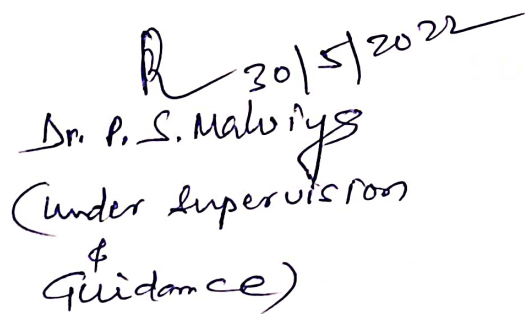 30/5/2022
Dr. P. S. Malviya
(under supervision
&
Guidance)